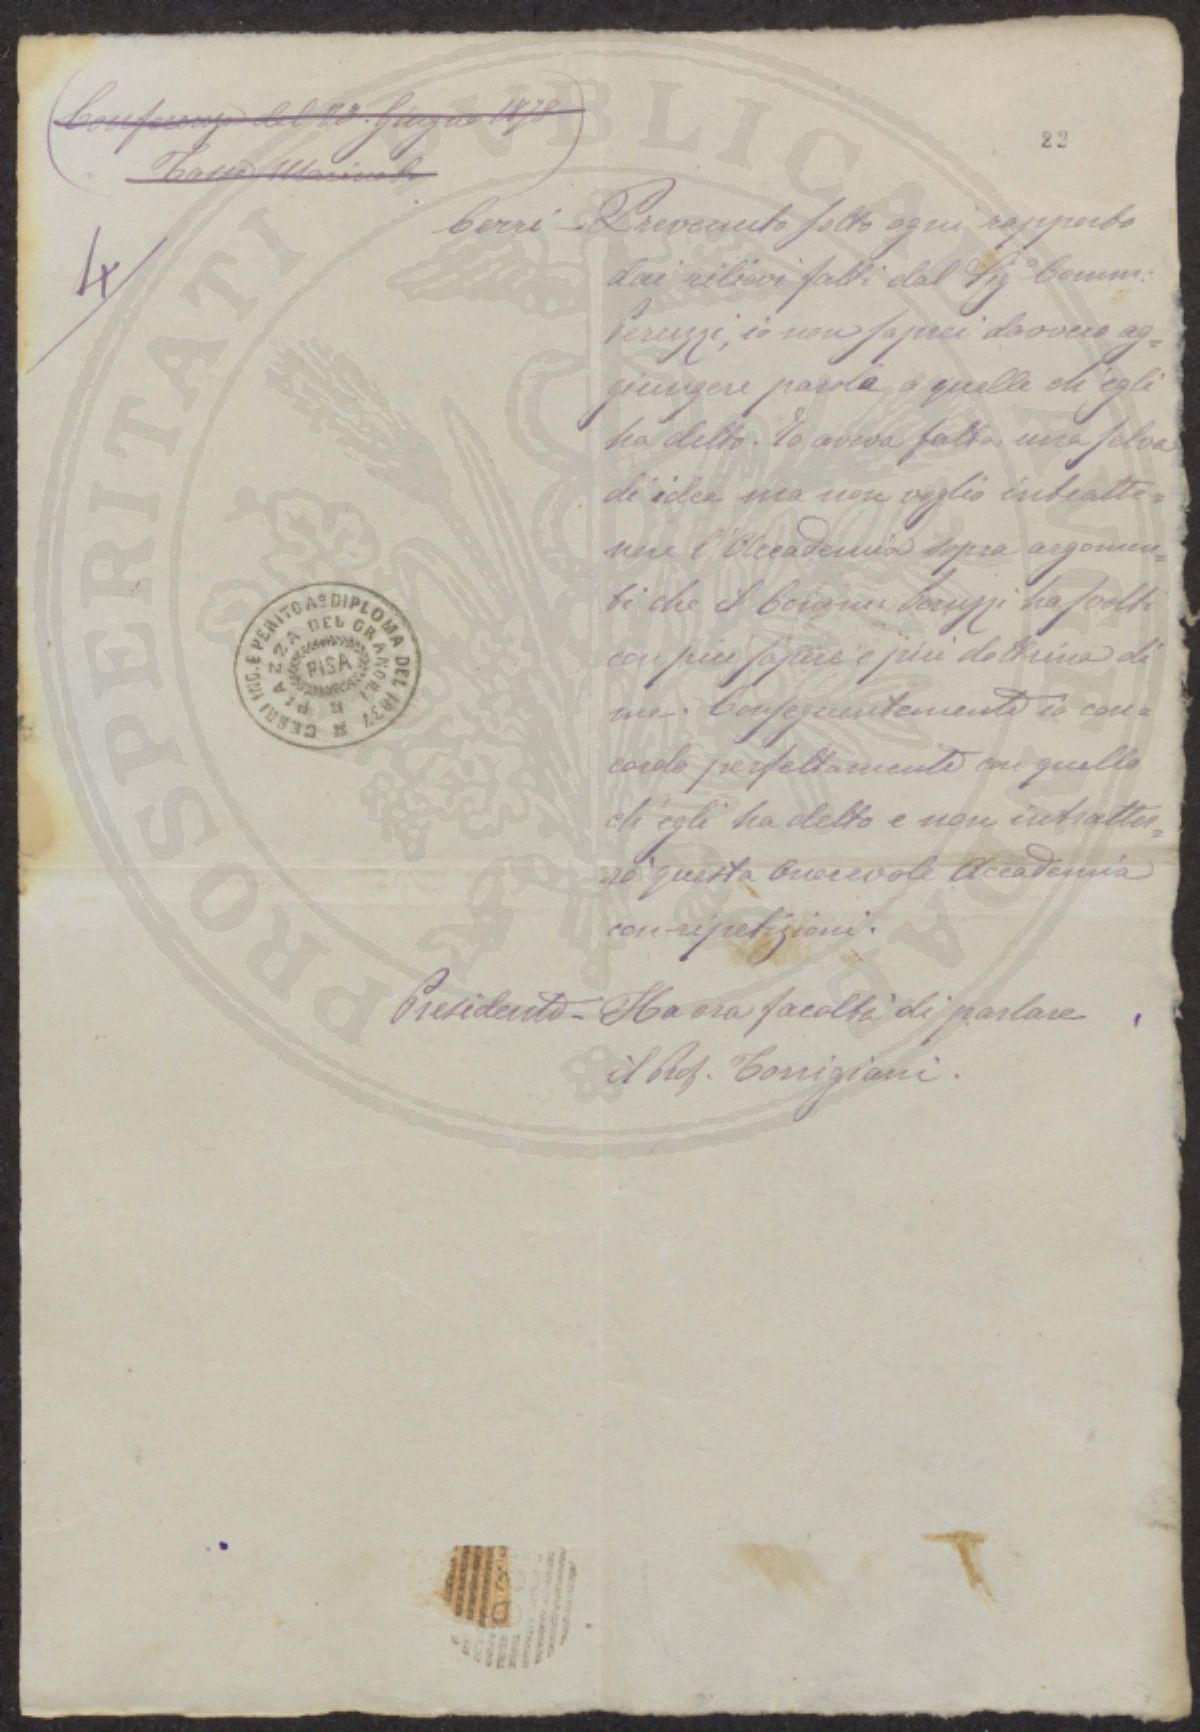 Conferenza del 23. Giugno 1878
Tasse Marittime
23
4
Cerri - Prevenuto sotto ogni rapporto
dai rilievi fatti dal Sigº Comm:
Peruzzi, io non saprei davvero ag=
giungere parola a quelle ch'egli
ha detto. Io aveva fatta una selva
di idee ma non voglio intratte=
nere l'Accademia sopra argomen=
ti che il Comm Peruzzi ha svolti
con più sapere e più dottrina di
me. Conseguentemente io con=
cordo perfettamente con quello
ch'egli ha detto e non intratter=
rò questa Onorevole Accademia
con ripetizioni.
Presidente - Ha ora facoltà di parlare
il Prof. Torrigiani.
CERRI ING. E PERITO Aº DIPLOMA DEL 1837
PIAZZA DEL GRANO N.1
PISA
PROSPERITATI PVBLICAE